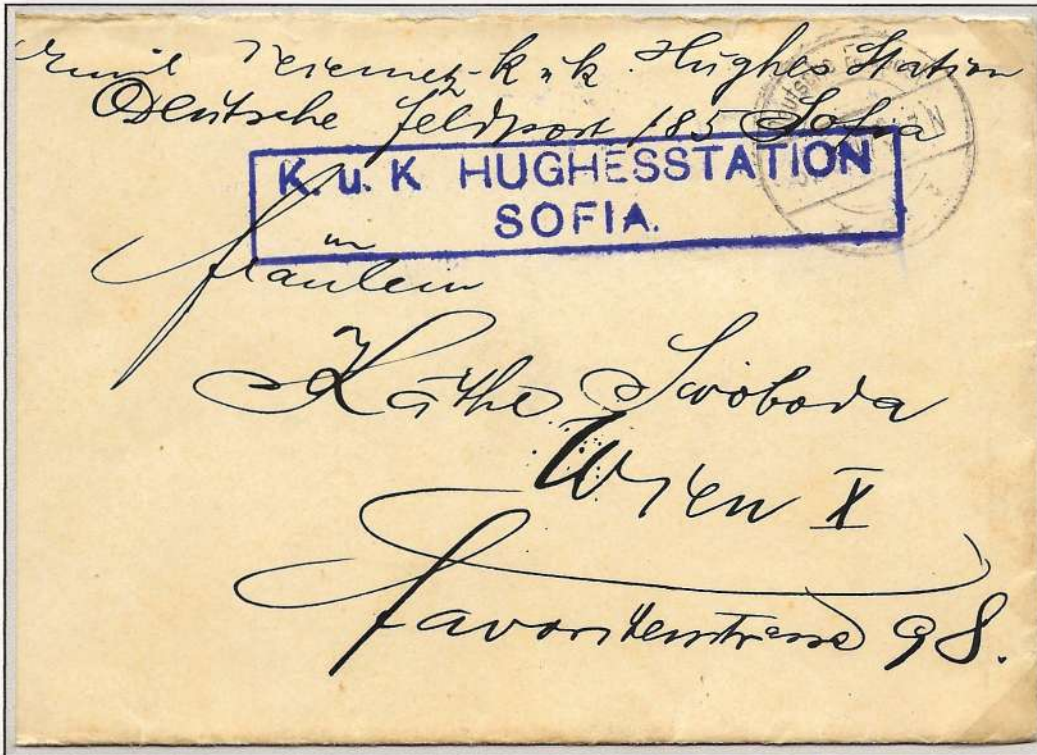 Emil k u k Hughes Station
Deutsche Feldpost 185 Sofia
Deutsche
K. u. K HUGHESSTATION
SOFIA.
Fräulein
Käthe Swoboda
Wien X
Favoritenstrasse 98.